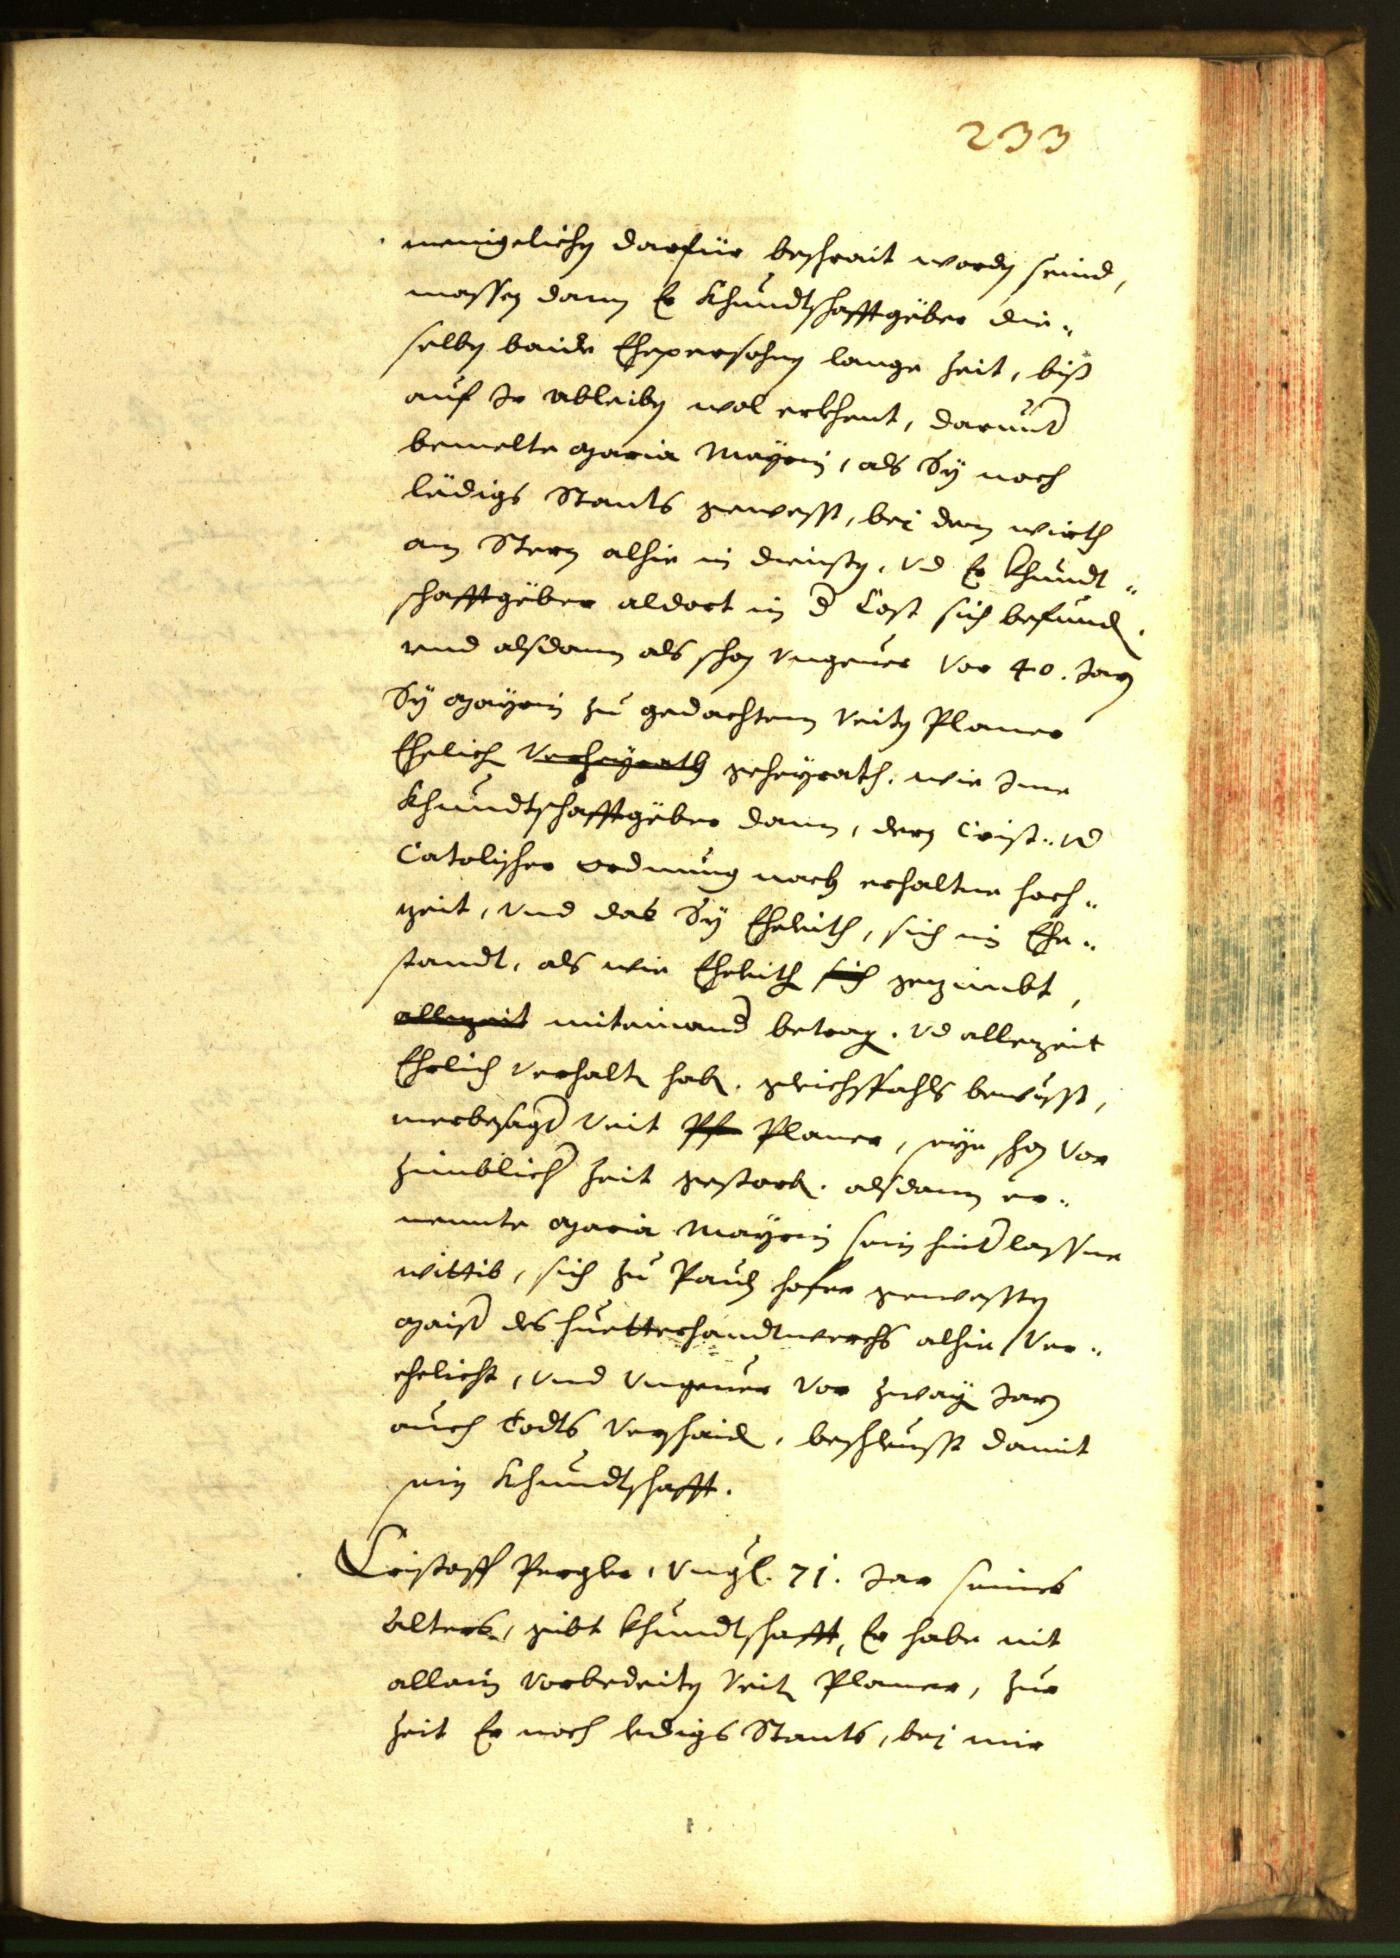 233
menigelichen darfür beschrait worden seind,
massen dann Er Khundtschafftgeber die¬
selben baide Ehepersohnen lange Zeit, biß
auf Ir ableiben wol erkhent, darunter
bemelte Maria Mayrin, als Sÿ noch
lëdigs Stants gewesst, bej dem wirth
am Stern alhie in diensten, vnd Er Khundt¬
schafftgëber aldort in der Cost sich befunden.
vnd alsdann als schon vngeuer vor 40. Jarn
Sÿ Mayrin zu gedachtem Veiten Planer
Ehelich verheÿrath geheÿrath, wie Ime
Khundtschafftgëber dann, dern Crist: vnd
Catolischer ordnung nach erhaltne hoch¬
zeit, vnd das Sÿ Eheleith, sich im Ehe¬
standt, als wie Eheleith sich gezimbt,
allezeit miteinander betragen. vnd allezeit
Ehrlich verhalten haben. gleichsfahls bewusst,
merbesagter Veit Pf Planer, seye schon vor
zimblicher Zeit gestorben. alsdann er¬
nennte Maria Mayrin sein hinterlassne
wittib, sich zu Paul hofer gewesten
Maister des huetterhandtwerchs alhie ver¬
ehelicht, vnd vngeuer vor zwaÿ Jarn
auch Todts verschaiden, beschleusst damit
sein Khundtschafft.
Cristoff Pergler, vngl. 71. Jar seines
alters, gibt khundtschafft, Er habe nit
allain vorbedeiten Veiten Planer, zur
Zeit Er noch ledigs Stants, bej mir